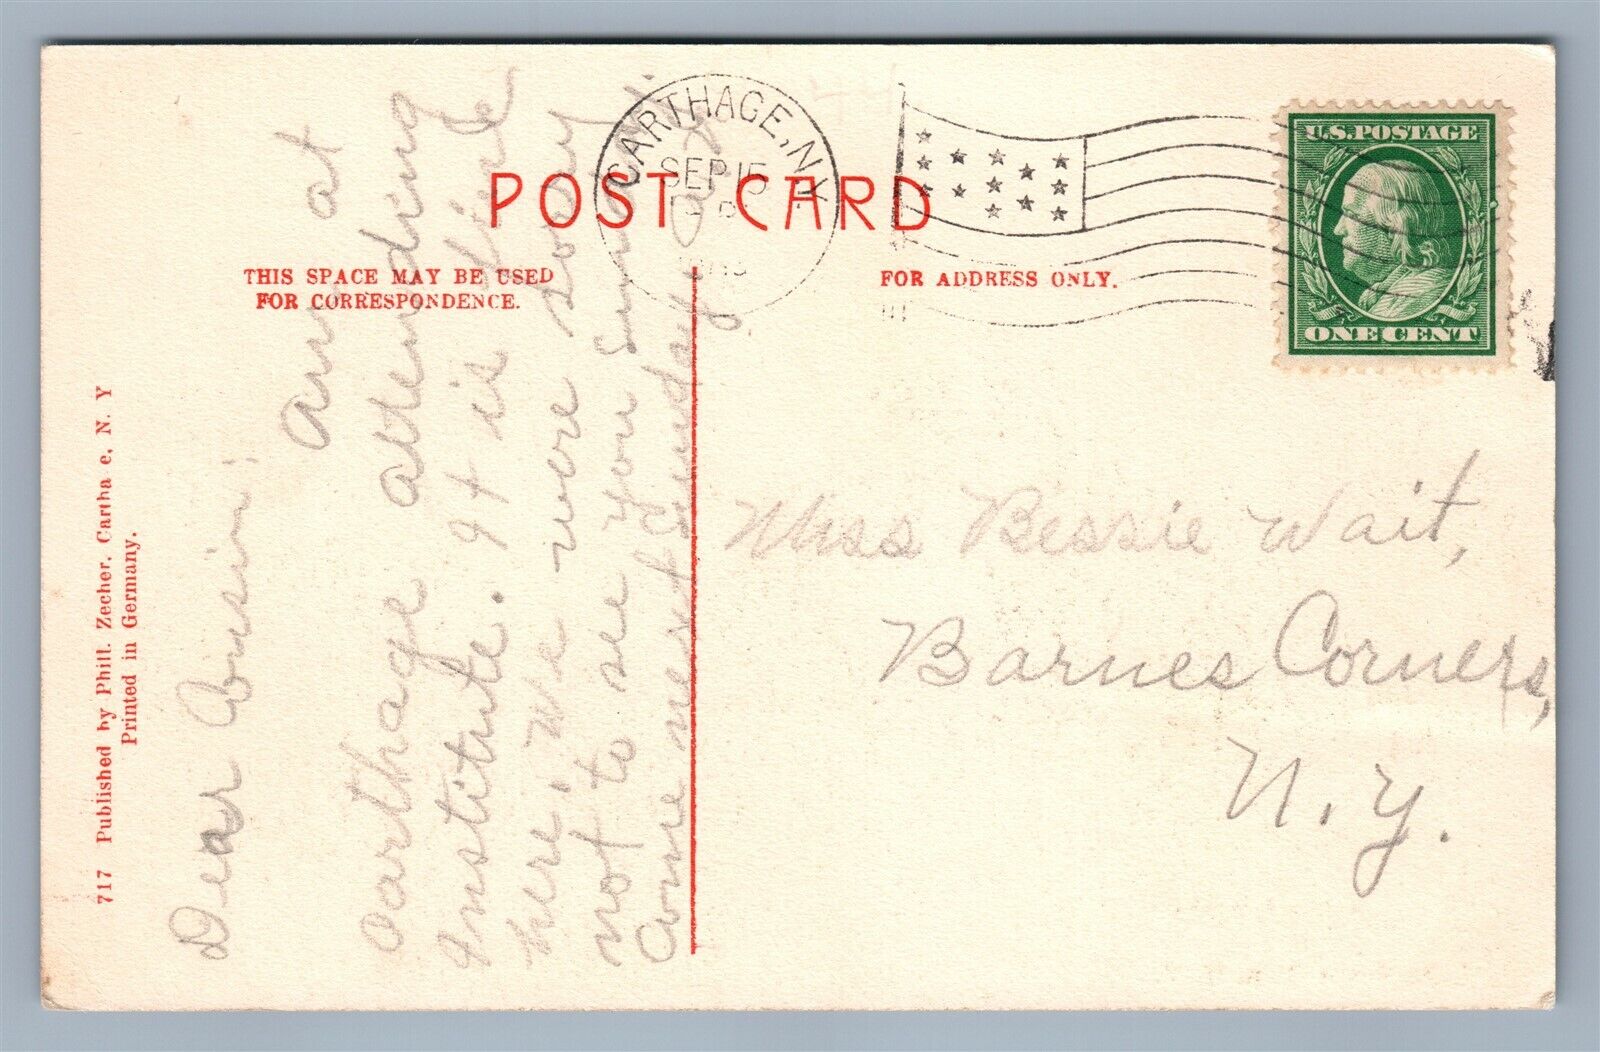 POST CARD
THIS SPACE MAY BE USED
FOR CORRESPONDENCE.
FOR ADDRESS ONLY.
CARTHAGE, N.Y.
SEP 15
U.S. POSTAGE
ONE CENT
717 Published by Phill. Zecher, Cartha e, N. Y
Printed in Germany.
Dear Cousin:
Am at
Carthage attending
Institute. It is fine
here. We were sorry
not to see you Sunday.
Come next Sunday
Miss Bessie Wait,
Barnes Corners,
N.Y.